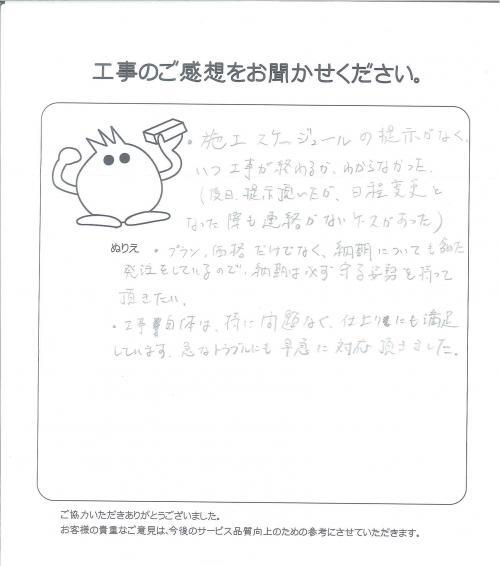 工事のご感想をお聞かせください。
・施工スケージュールの提示がなく、
いつ工事が終わるか、わからなかった。
(後日、提示頂いたが、日程変更と
なった際も連絡がないケースがあった)
ぬりえ
・プラン、価格だけでなく、納期についても
発注をしているので、納期は必ず守る姿勢を持って
頂きたい。
・工事自体は、特に問題なく、仕上りにも満足
しています。急なトラブルにも早急に対応頂きました。
ご協力いただきありがとうございました。
お客様の貴重なご意見は、今後のサービス品質向上のための参考にさせていただきます。